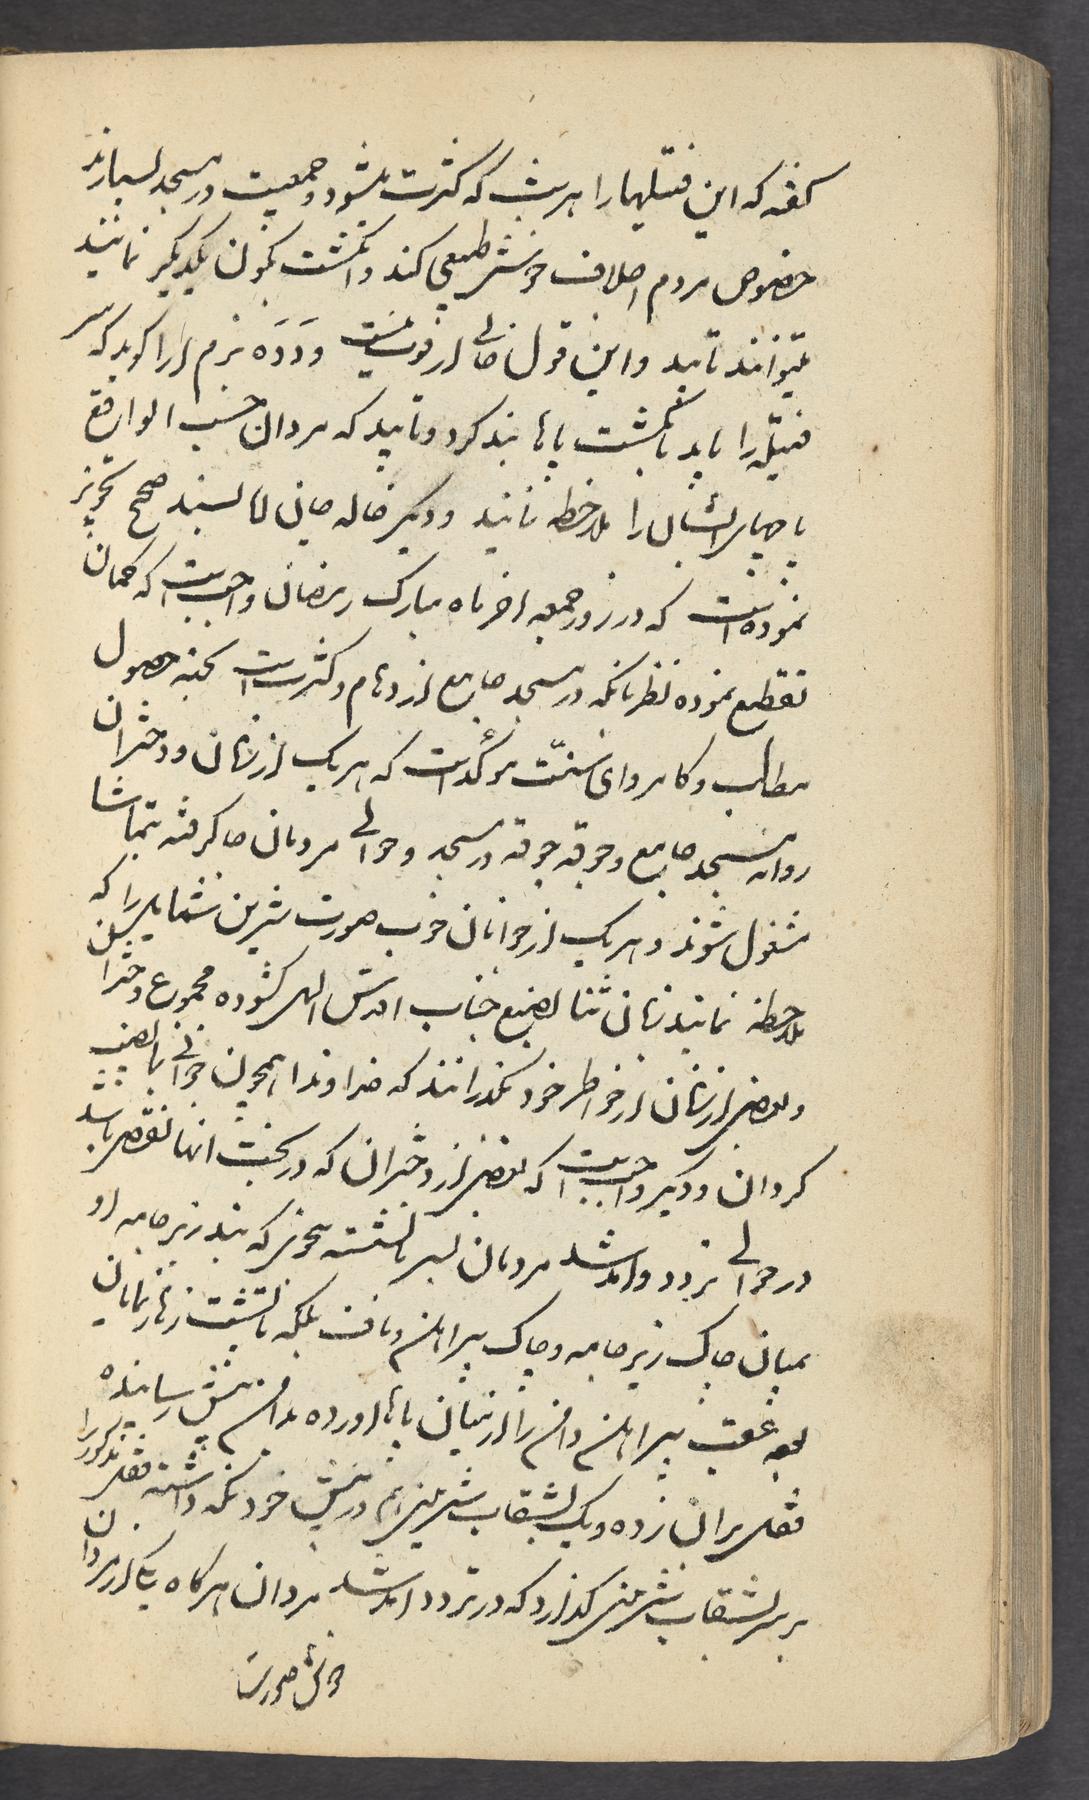 گفته که این فتیلها را هر شب که کثرت بشود و جمعیت در مسجد بسیار باشد
خصوص مردم اجلاف خوش طبعی کند و انگشت بکون یکدیگر نمایند
میتوانند تابید و این قول خالی از قوت نیست و دده بزم ارا گوید که سر
فتیله را باید بانگشت پاها بند کرد و تابید که مردان حسب الواقع
پاچهای ایشان را ملاحظه نمایند و دیگر خاله جان اقا بسند صحیح تجویز
نموده است که در روز جمعه اخر ماه مبارک رمضان واجبست که همان
تقطیع نموده نظر بانکه در مسجد جامع ازدحام و کثرت است بجهة حصول
مطالب و کامروای سنت مؤکد است که هر یک از زنان و دختران
روانه مسجد جامع و جوقه جوقه در مسجد و حوالی مردان جا گرفته بتماشا
مشغول شوند و هر یک از جوانان خوب صورت شیرین شمایل را که
ملاحظه نمایند زبان ثنا بصنع جناب اقدس الهی کشوده مجموع دختران
و بعضی از زنان از خواطر خود بگذرانند که خداوندا همچون جوانی نصیب
گردان و دیگر واجبست که بعضی از دختران که در بخت انها نقص باشد
در حوالی تردد و امد شد مردمان بسر پا نشسته بنحوی که بند زیر جامه او
میان چاک زیر جامه و چاک پیراهن و ناف بلکه تا پشت زهار نمایان
بعد عقب پیراهن و دامن را از میان پاها اورده بدامن پیش رسانیده
قفل بران زده و یک بشقاب شیرینی هم در پیش خود نگه داشته قفل مذکور را
بر سر بشقاب شیرینی گذارد که در تردد امد شد مردان هرگاه یکی از مردان
خوش صورت